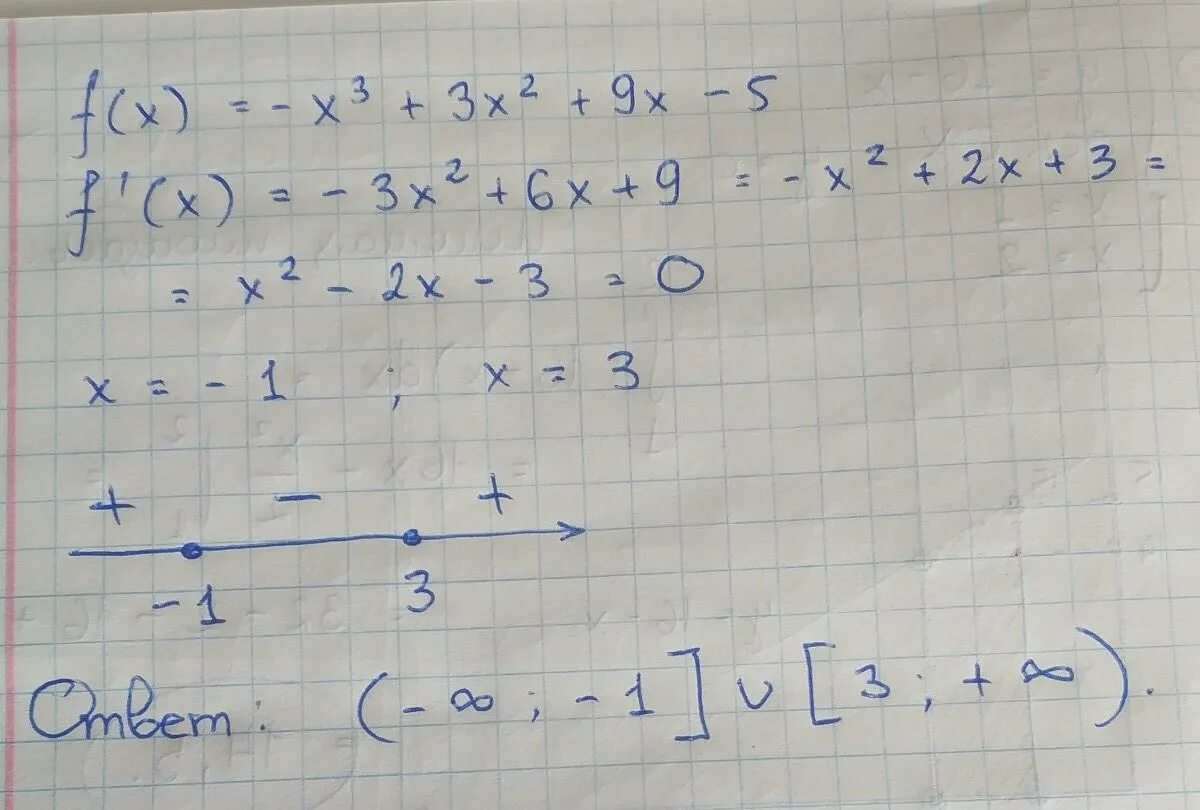 f(x) = - x³ + 3x² + 9x - 5
f'(x) = - 3x² + 6x + 9 = - x² + 2x + 3 =
= x² - 2x - 3 = 0
x = - 1 ; x = 3
+ - +
-1 3
Ответ: (- ∞ ; - 1] ∪ [3 ; + ∞).